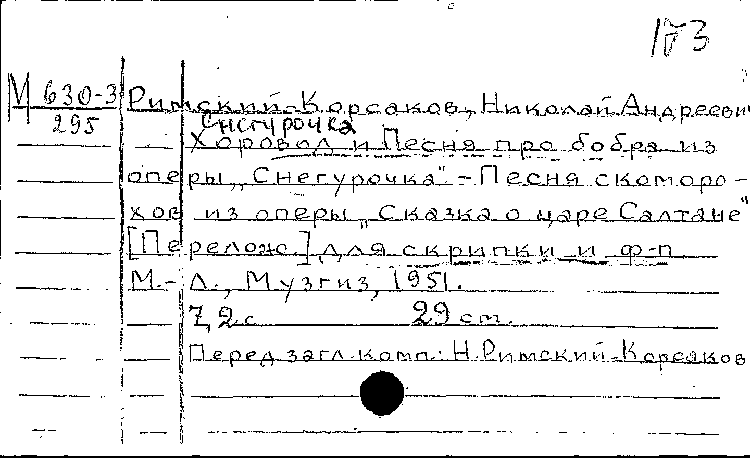 173
М 630-3
295
Римский-Корсаков, Николай Андреевич
Снегурочка
Хоровод и Песня про бобра из
оперы „Снегурочка". - Песня скоморо-
хов из оперы „Сказка о царе Салтане"
[Перелож.] для скрипки и ф-п
М.-Л., Музгиз, 1951.
7,2 с 29 см.
Перед загл. комп.: Н. Римский-Корсаков